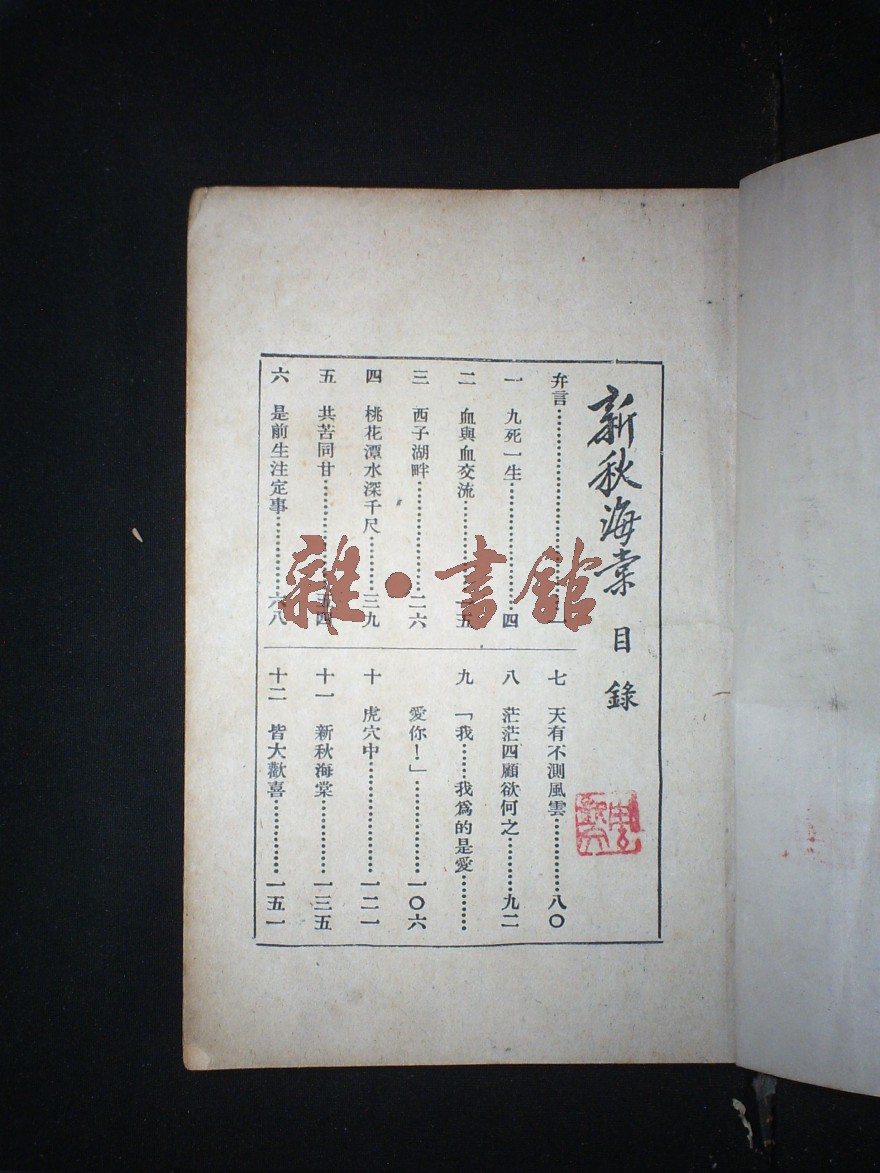 新秋海棠 目錄
弁言…………一
一 九死一生…………四
二 血與血交流…………一五
三 西子湖畔…………二六
四 桃花潭水深千尺…………三九
五 共苦同甘…………五四
六 是前生注定事…………六八
七 天有不測風雲…………八〇
八 茫茫四顧欲何之…………九二
九 「我……我爲的是愛…………
愛你！」…………一〇六
十 虎穴中…………一二一
十一 新秋海棠…………一三五
十二 皆大歡喜…………一五一
雜·書館